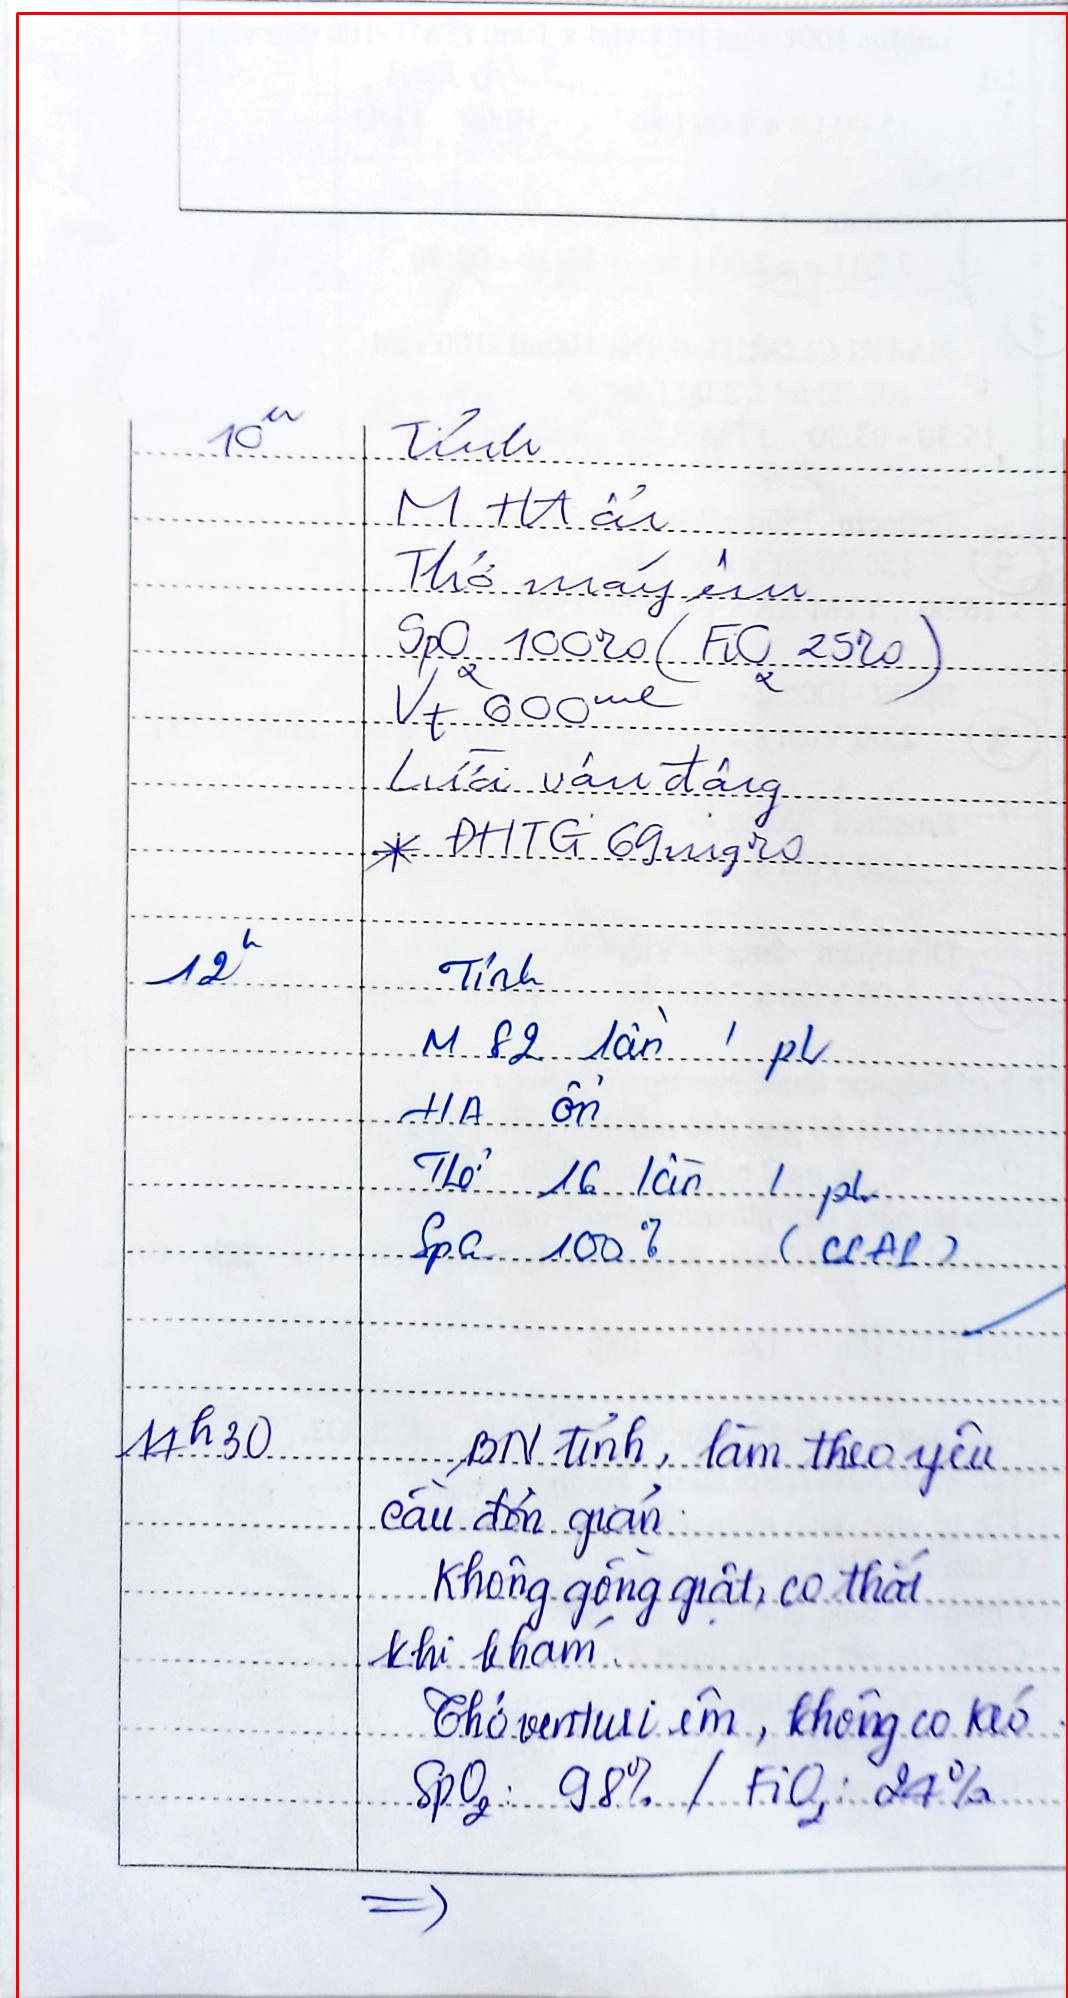 10h
Tỉnh
M HA ổn
Thở máy êm
SpO2 100% (FiO2 25%)
Vt 600ml
Lưỡi vẫn đăng
* ĐHTG 69mg%
12h
Tỉnh
M 82 lần / ph
HA ổn
Thở 16 lần / ph
SpO2 100%
17h30
BN tỉnh, làm theo yêu
cầu đơn giản
Không gồng giật, co thắt
khi khám.
Thở venturi êm, không co kéo
SpO2: 98% / FiO2: 24%
=>